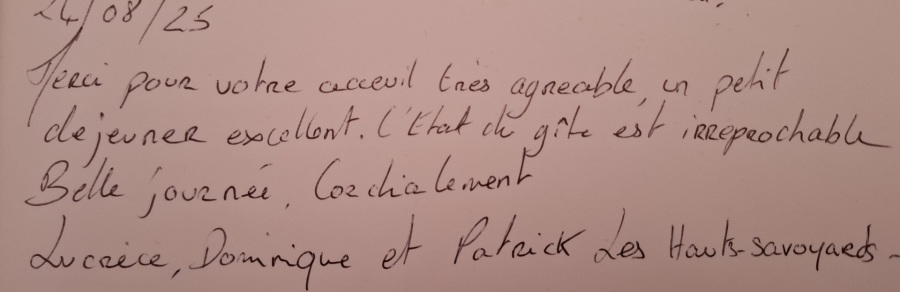 24/08/25
Merci pour votre acceuil très agreable, un petit
dejeuner excellent. L'Etat du gîte est irreprochable
Belle journée, Cordialement
Lucrèce, Dominique et Patrick Les Hauts-Savoyards -